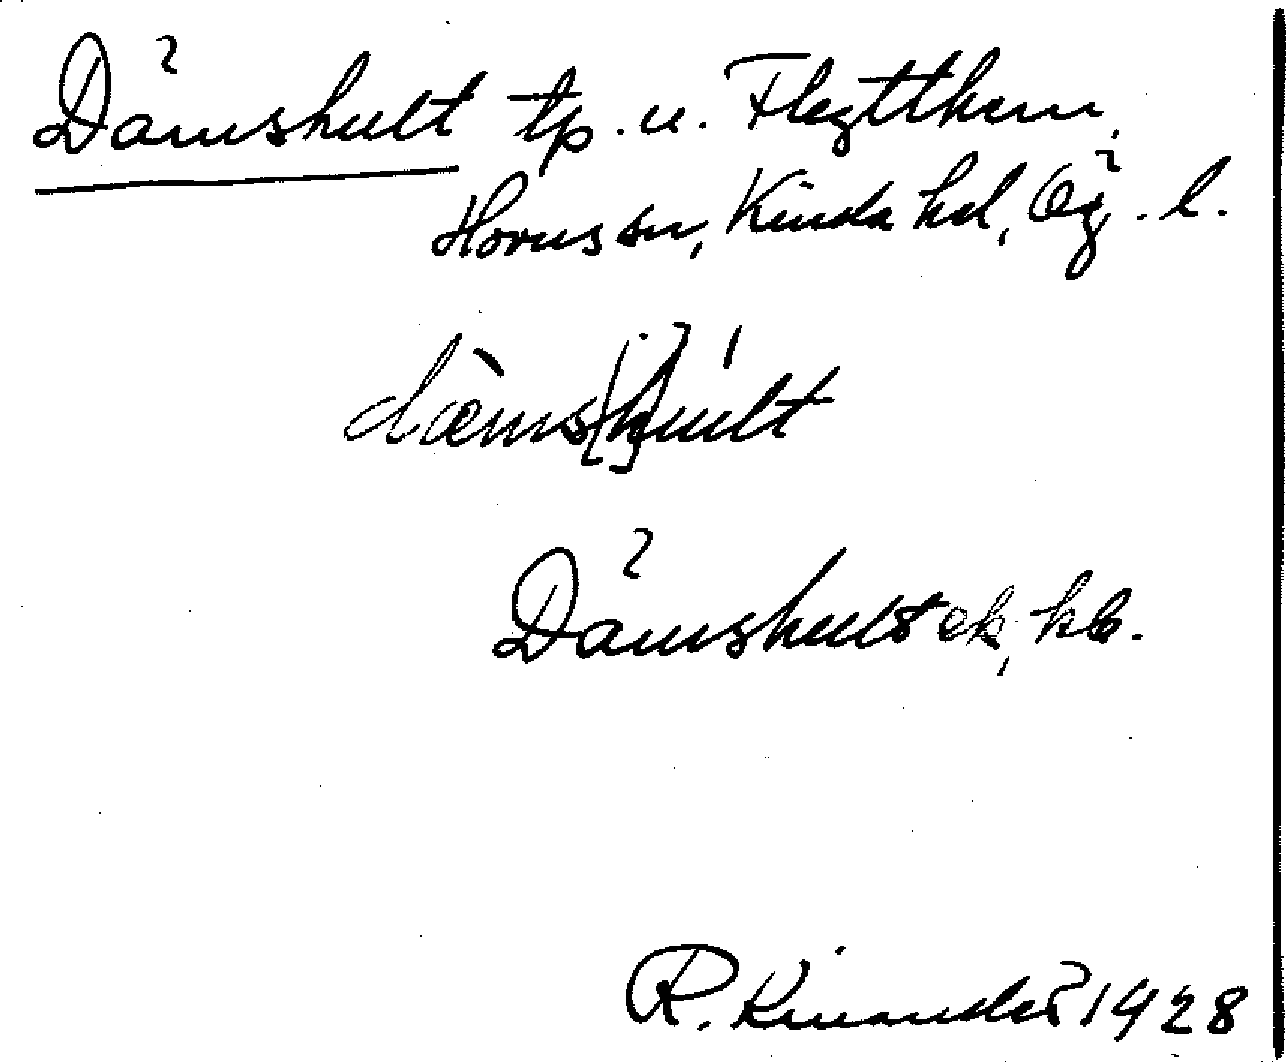 Dämshult tp. u. Flytthem,
Horns sn, Kinda hd, Ög. l.
dæ̀ms[h]ul̍t
Dämshult ek, kb.
R. Kinander 1928